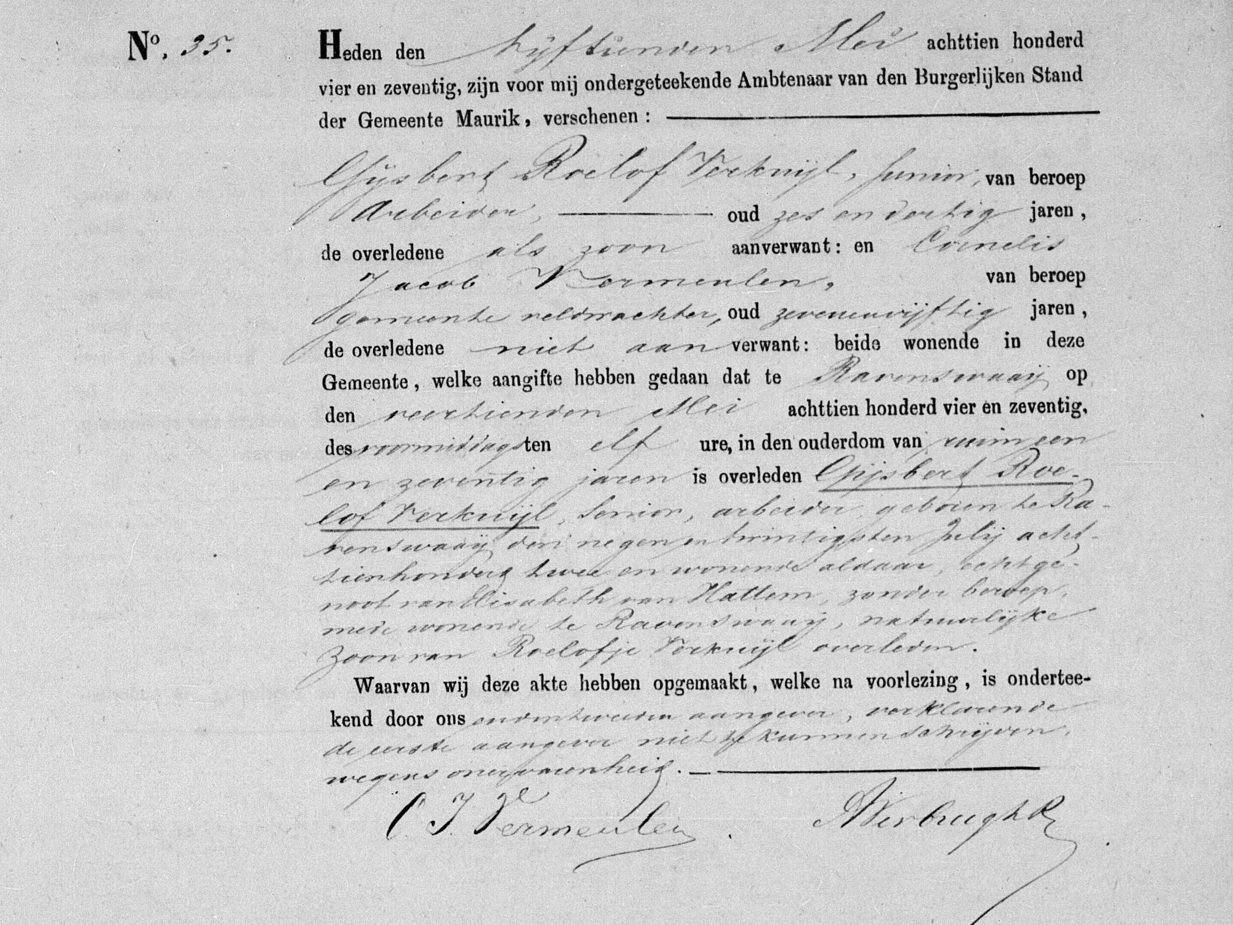 Nº. 35.
Heden den vijftienden Mei achttien honderd
vier en zeventig, zijn voor mij ondergeteekende Ambtenaar van den Burgerlijken Stand
der Gemeente Maurik, verschenen :
Gijsbert Roelof Verkuijl, Junior, van beroep
Arbeider, oud zes en dertig jaren ,
de overledene als zoon aanverwant : en Cornelis
Jacob Vermeulen, van beroep
gemeente veldwachter, oud zevenenvijftig jaren ,
de overledene niet aan verwant : beide wonende in deze
Gemeente , welke aangifte hebben gedaan dat te Ravenswaaij op
den veertienden Mei achttien honderd vier en zeventig,
des voormiddags ten elf ure, in den ouderdom van ruim een
en zeventig jaren is overleden Gijsbert Roe-
lof Verkuijl, Senior, arbeider, geboren te Ra-
venswaaij den negen en twintigsten Julij acht-
tienhonderd twee en wonende aldaar, echtge-
noot van Elisabeth van Hattem, zonder beroep,
mede wonende te Ravenswaaij, natuurlijke
zoon van Roelofje Verkuijl overleden.
Waarvan wij deze akte hebben opgemaakt, welke na voorlezing , is onderteekend
kend door ons en den tweeden aangever, verklarende
de eerste aangever niet te kunnen schrijven,
wegens onervarenheid.
C. J. Vermeulen. AVerbrughR